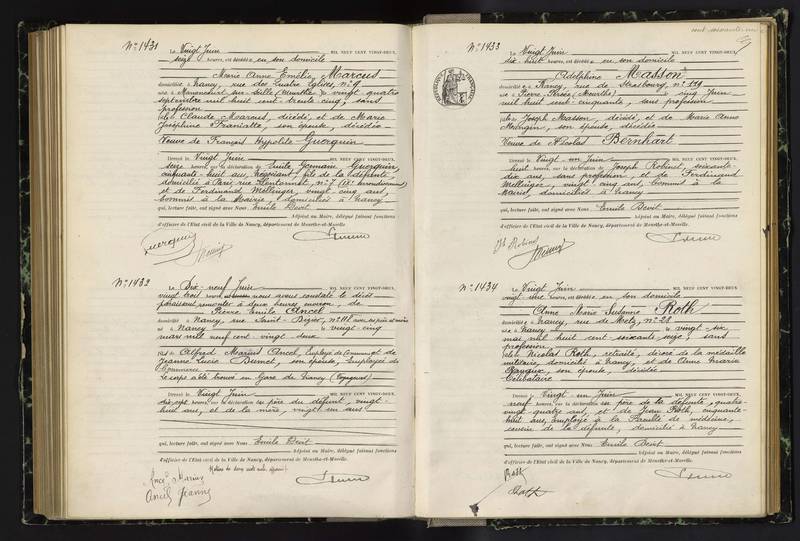 N° 1431
Le Vingt Juin MIL NEUF CENT VINGT-DEUX,
seize heures, est décédée en son domicile
Marie Anne Emélie Marcus
domiciliée à Nancy, rue des Quatre Eglises, n° 9
née à sur Seille (Meurthe) le vingt quatre
septembre mil huit cent trente cinq, sans
profession
fille de Claude Marcus, décédé, et de Marie
Joséphine son épouse, décédée
Veuve de François Hyppolite Guerquin
Dressé le Vingt Juin MIL NEUF CENT VINGT-DEUX,
seize heures, sur la déclaration de Emile Germain Guerquin,
cinquante huit ans, Négociant, fils de la défunte,
domicilié à Paris, rue n° 7 (IX° arrondissement)
et de Ferdinand Mellinger, vingt cinq ans,
commis à la Mairie, domicilié à Nancy
qui, lecture faite, ont signé avec Nous Emile Devit
Adjoint au Maire, délégué faisant fonctions
d'officier de l'Etat civil de la Ville de Nancy, département de Meurthe-et-Moselle.
Guerquin
N° 1432
Le Dix-neuf Juin MIL NEUF CENT VINGT-DEUX,
vingt trois heures nous avons constaté le décès
paraissant remonter à deux heures environ, de
Pierre Emile Ancel
domicilié à Nancy, rue Saint-Bizier, n° 118 avec ses père et mère
né à Nancy le vingt-cinq
mars mil neuf cent vingt deux
fils de Alfred Marius Ancel, Employé de Commerce et de
Jeanne Lucie Dumet, son épouse, Employée de
Commerce.
Le corps a été trouvé en Gare de Nancy
Dressé le Vingt Juin MIL NEUF CENT VINGT-DEUX,
dix-sept heures, sur la déclaration du père du défunt, vingt-
huit ans, et de la mère, vingt un ans
qui, lecture faite, ont signé avec Nous Emile Devit
Adjoint au Maire, délégué faisant fonctions
d'officier de l'Etat civil de la Ville de Nancy, département de Meurthe-et-Moselle.
Ancel Marius
Ancel Jeanne
cent soixante-un
N° 1433
Le Vingt Juin MIL NEUF CENT VINGT-DEUX,
dix-huit heures, est décédée en son domicile
Adelphine Masson
domiciliée à Nancy, rue de Strasbourg, n° 119
née à (Meurthe) le cinq Juin
mil huit cent-cinquante, sans profession
fille de Joseph Masson, décédé, et de Marie Anne
son épouse, décédée
Veuve de Nicolas Bernhart
Dressé le Vingt un Juin MIL NEUF CENT VINGT-DEUX,
huit heures, sur la déclaration de Joseph Robinet, soixante-
dix ans, sans profession, et de Ferdinand
Mellinger, vingt cinq ans, commis à la
Mairie, domiciliés à Nancy
qui, lecture faite, ont signé avec Nous Emile Devit
Adjoint au Maire, délégué faisant fonctions
d'officier de l'Etat civil de la Ville de Nancy, département de Meurthe-et-Moselle.
N° 1434
Le Vingt Juin MIL NEUF CENT VINGT-DEUX
vingt-une heures, est décédée en son domicile
Anne Marie Suzanne Roth
domiciliée à Nancy, rue de Metz, n° 28
née à Nancy le vingt-six
mai mil huit cent-soixante-seize, sans
profession
fille de Nicolas Roth, retraité, décoré de la médaille
militaire, domicilié à Nancy, et de Anne Marie
son épouse, décédée
Célibataire
Dressé le Vingt-un Juin MIL NEUF CENT VINGT-DEUX
neuf heures, sur la déclaration du père de la défunte, quatre-
vingt-quatre ans, et de Jean Roth, cinquante-
huit ans, employé à la Faculté de médecine,
cousin de la défunte, domiciliés à Nancy
qui, lecture faite, ont signé avec Nous Emile Devit
Adjoint au Maire, délégué faisant fonctions
d'officier de l'Etat civil de la Ville de Nancy, département de Meurthe-et-Moselle.
Roth
Roth